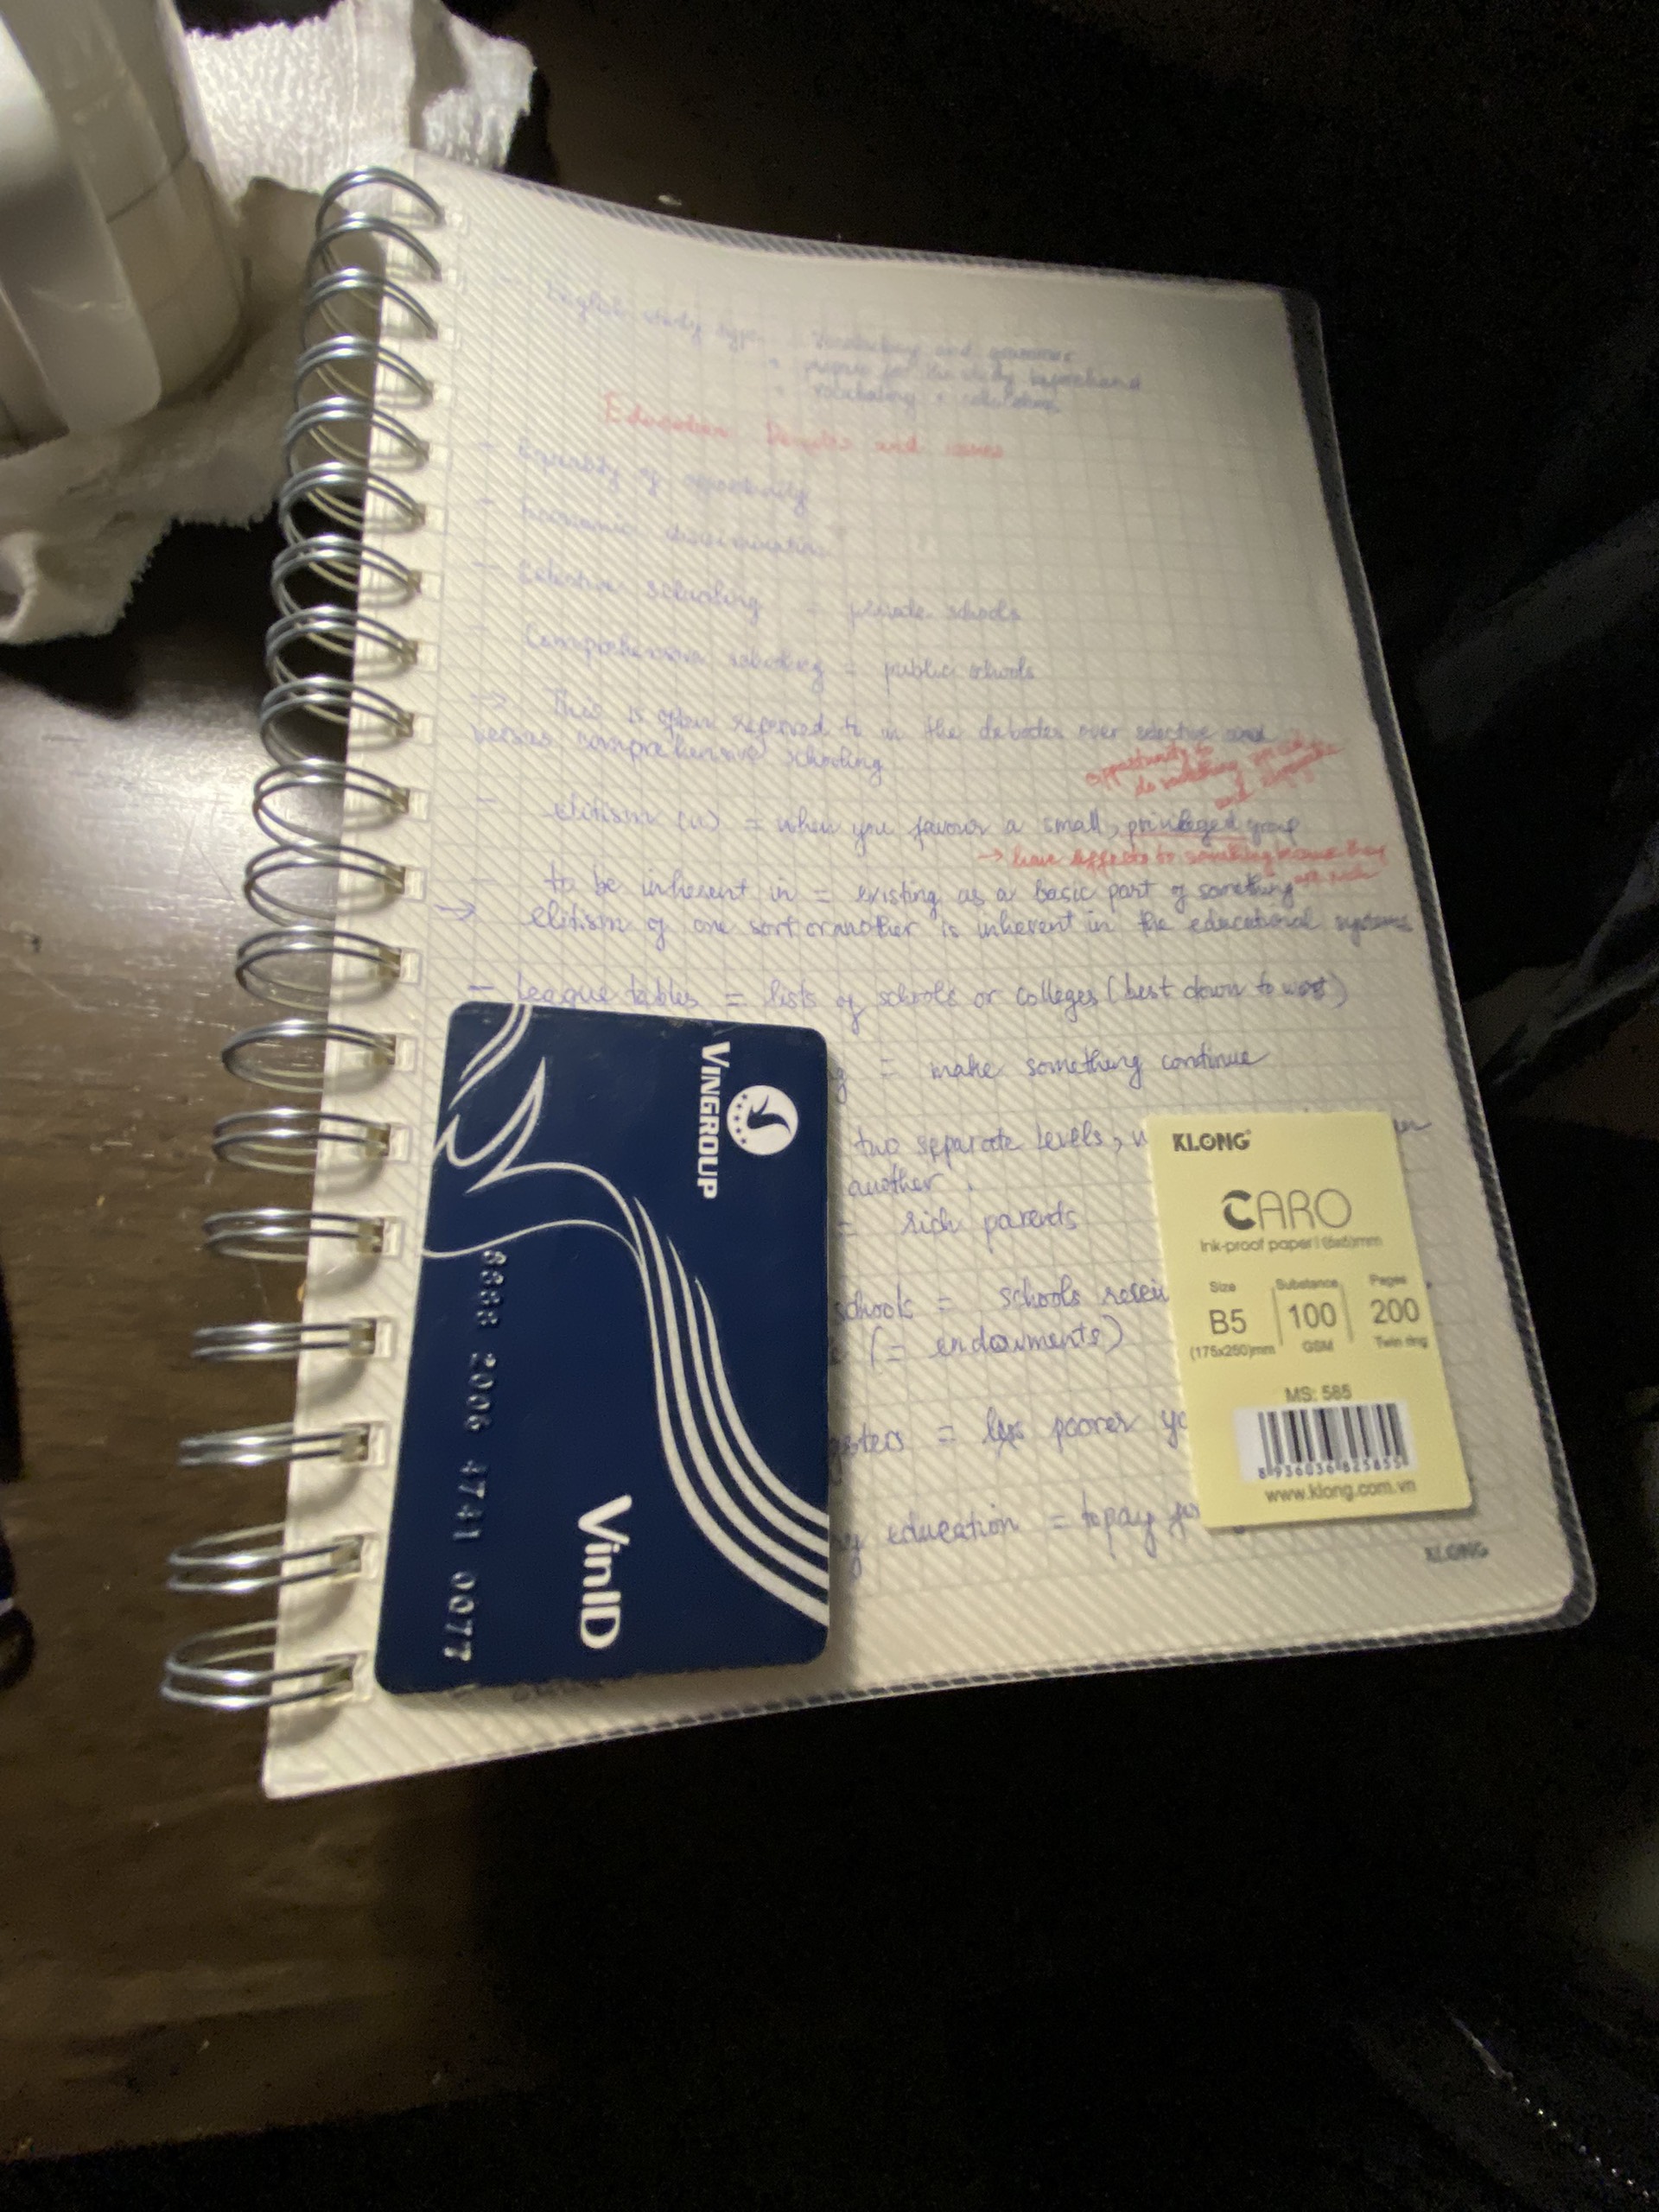 English study type
vocabulary and grammar
prepare for the study beforehand
vocabulary + collocations
Education: Debates and issues
- Equality of opportunity
- Economic discrimination
- Selective schooling = private schools
- Comprehensive schooling = public schools
=> This is often referred to in the debates over selective and
versus comprehensive schooling
opportunity to
do something special
and
- elitism (n) = when you favour a small, privileged group
→ have effects to something because they
are rich
- to be inherent in = existing as a basic part of something
→ elitism of one sort or another is inherent in the educational systems
- League tables = lists of schools or colleges (best down to worst)
= make something continue
two separate levels,
another.
= rich parents
schools = schools
(= endowments)
= poorer
education = to pay for
VINGROUP
8888 2006 4741 0077
VinID
KLONG
CARO
Ink-proof paper | (6x6)mm
Size Substance Pages
B5 100 200
(175x250)mm GSM Twin ring
MS: 585
8 936036 825855
www.klong.com.vn
KLONG